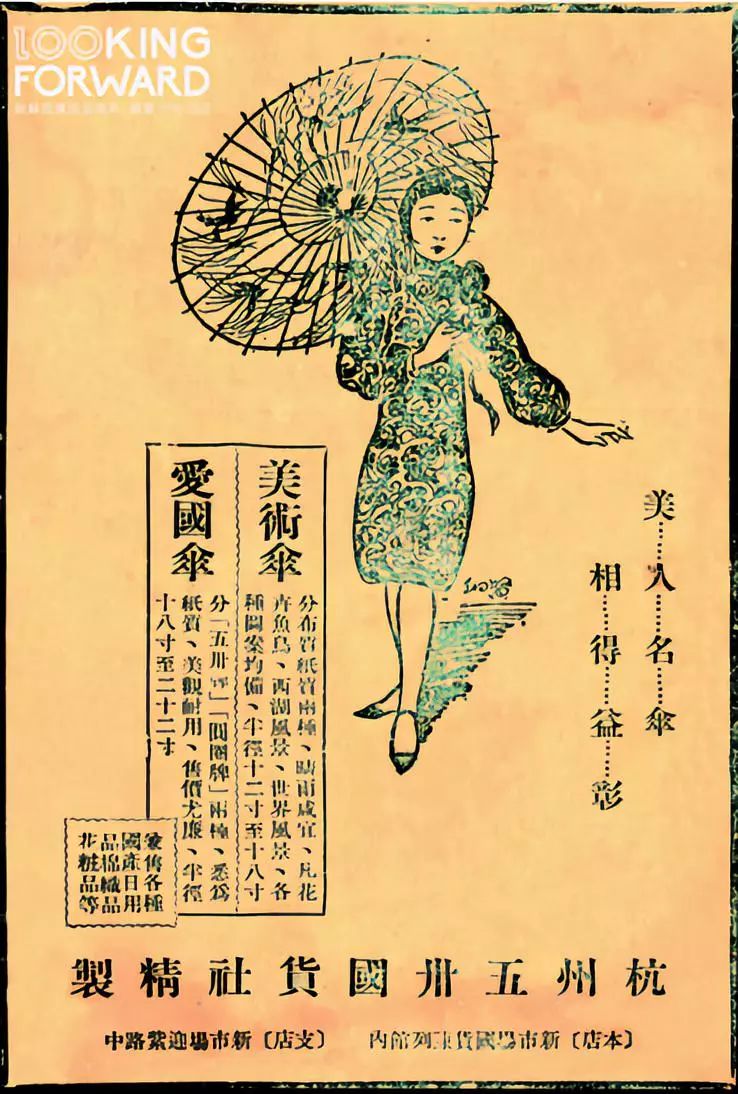 100KING
FORWARD
美……人……名……傘
相……得……益……彰
美術傘
分布質紙質兩種、晴雨咸宜、凡花
卉魚鳥、西湖風景、世界風景、各
種圖案均備、半徑十二寸至十八寸
愛國傘
分「五卅牌」「閶闔牌」兩種、悉爲
紙質、美觀耐用、售價尤廉、半徑
十八寸至二十二寸
兼售各種
國產日用
品棉織品
花粧品等
杭州五卅國貨社精製
〔本店〕新市場國貨陳列館內
〔支店〕新市場迎紫路中